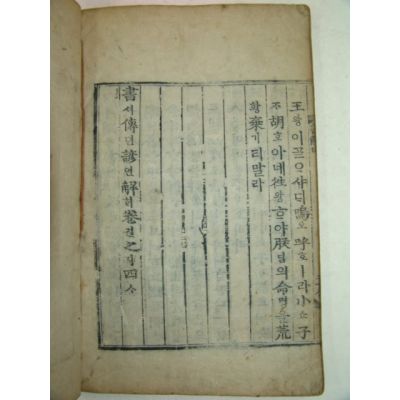 王왕이ᄀᆞᆯᄋᆞ샤ᄃᆡ嗚오呼호ㅣ라小쇼子
ᄌᆞ胡호아네往왕ᄒᆞ야朕딤의命명을荒
황棄기티말라
書셔傳뎐諺언解ᄒᆡ卷권之지四ᄉᆞ